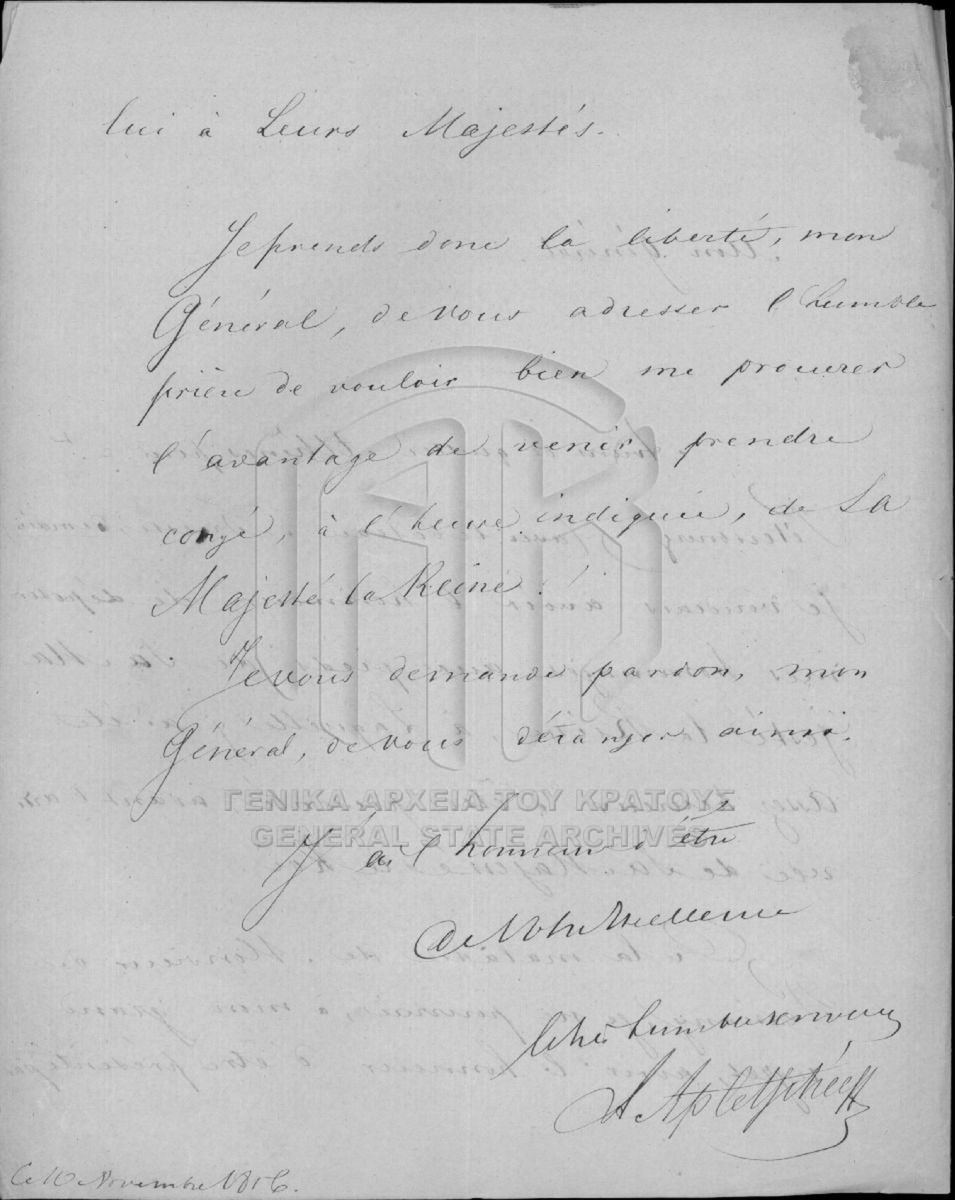 lui à Leurs Majestés.
Je prends donc la liberté, mon
Général, de vous adresser l'humble
prière de vouloir bien me procurer
l'avantage de venir prendre
congé, à l'heure indiquée, de Sa
Majesté la Reine!
Je vous demande pardon, mon
Général, de vous déranger ainsi.
ΓΕΝΙΚΑ ΑΡΧΕΙΑ ΤΟΥ ΚΡΑΤΟΥΣ
GENERAL STATE ARCHIVES
J'ai l'honneur d'être
De Votre Excellence
le très humble serviteur
Ce 10 Novembre 1856.